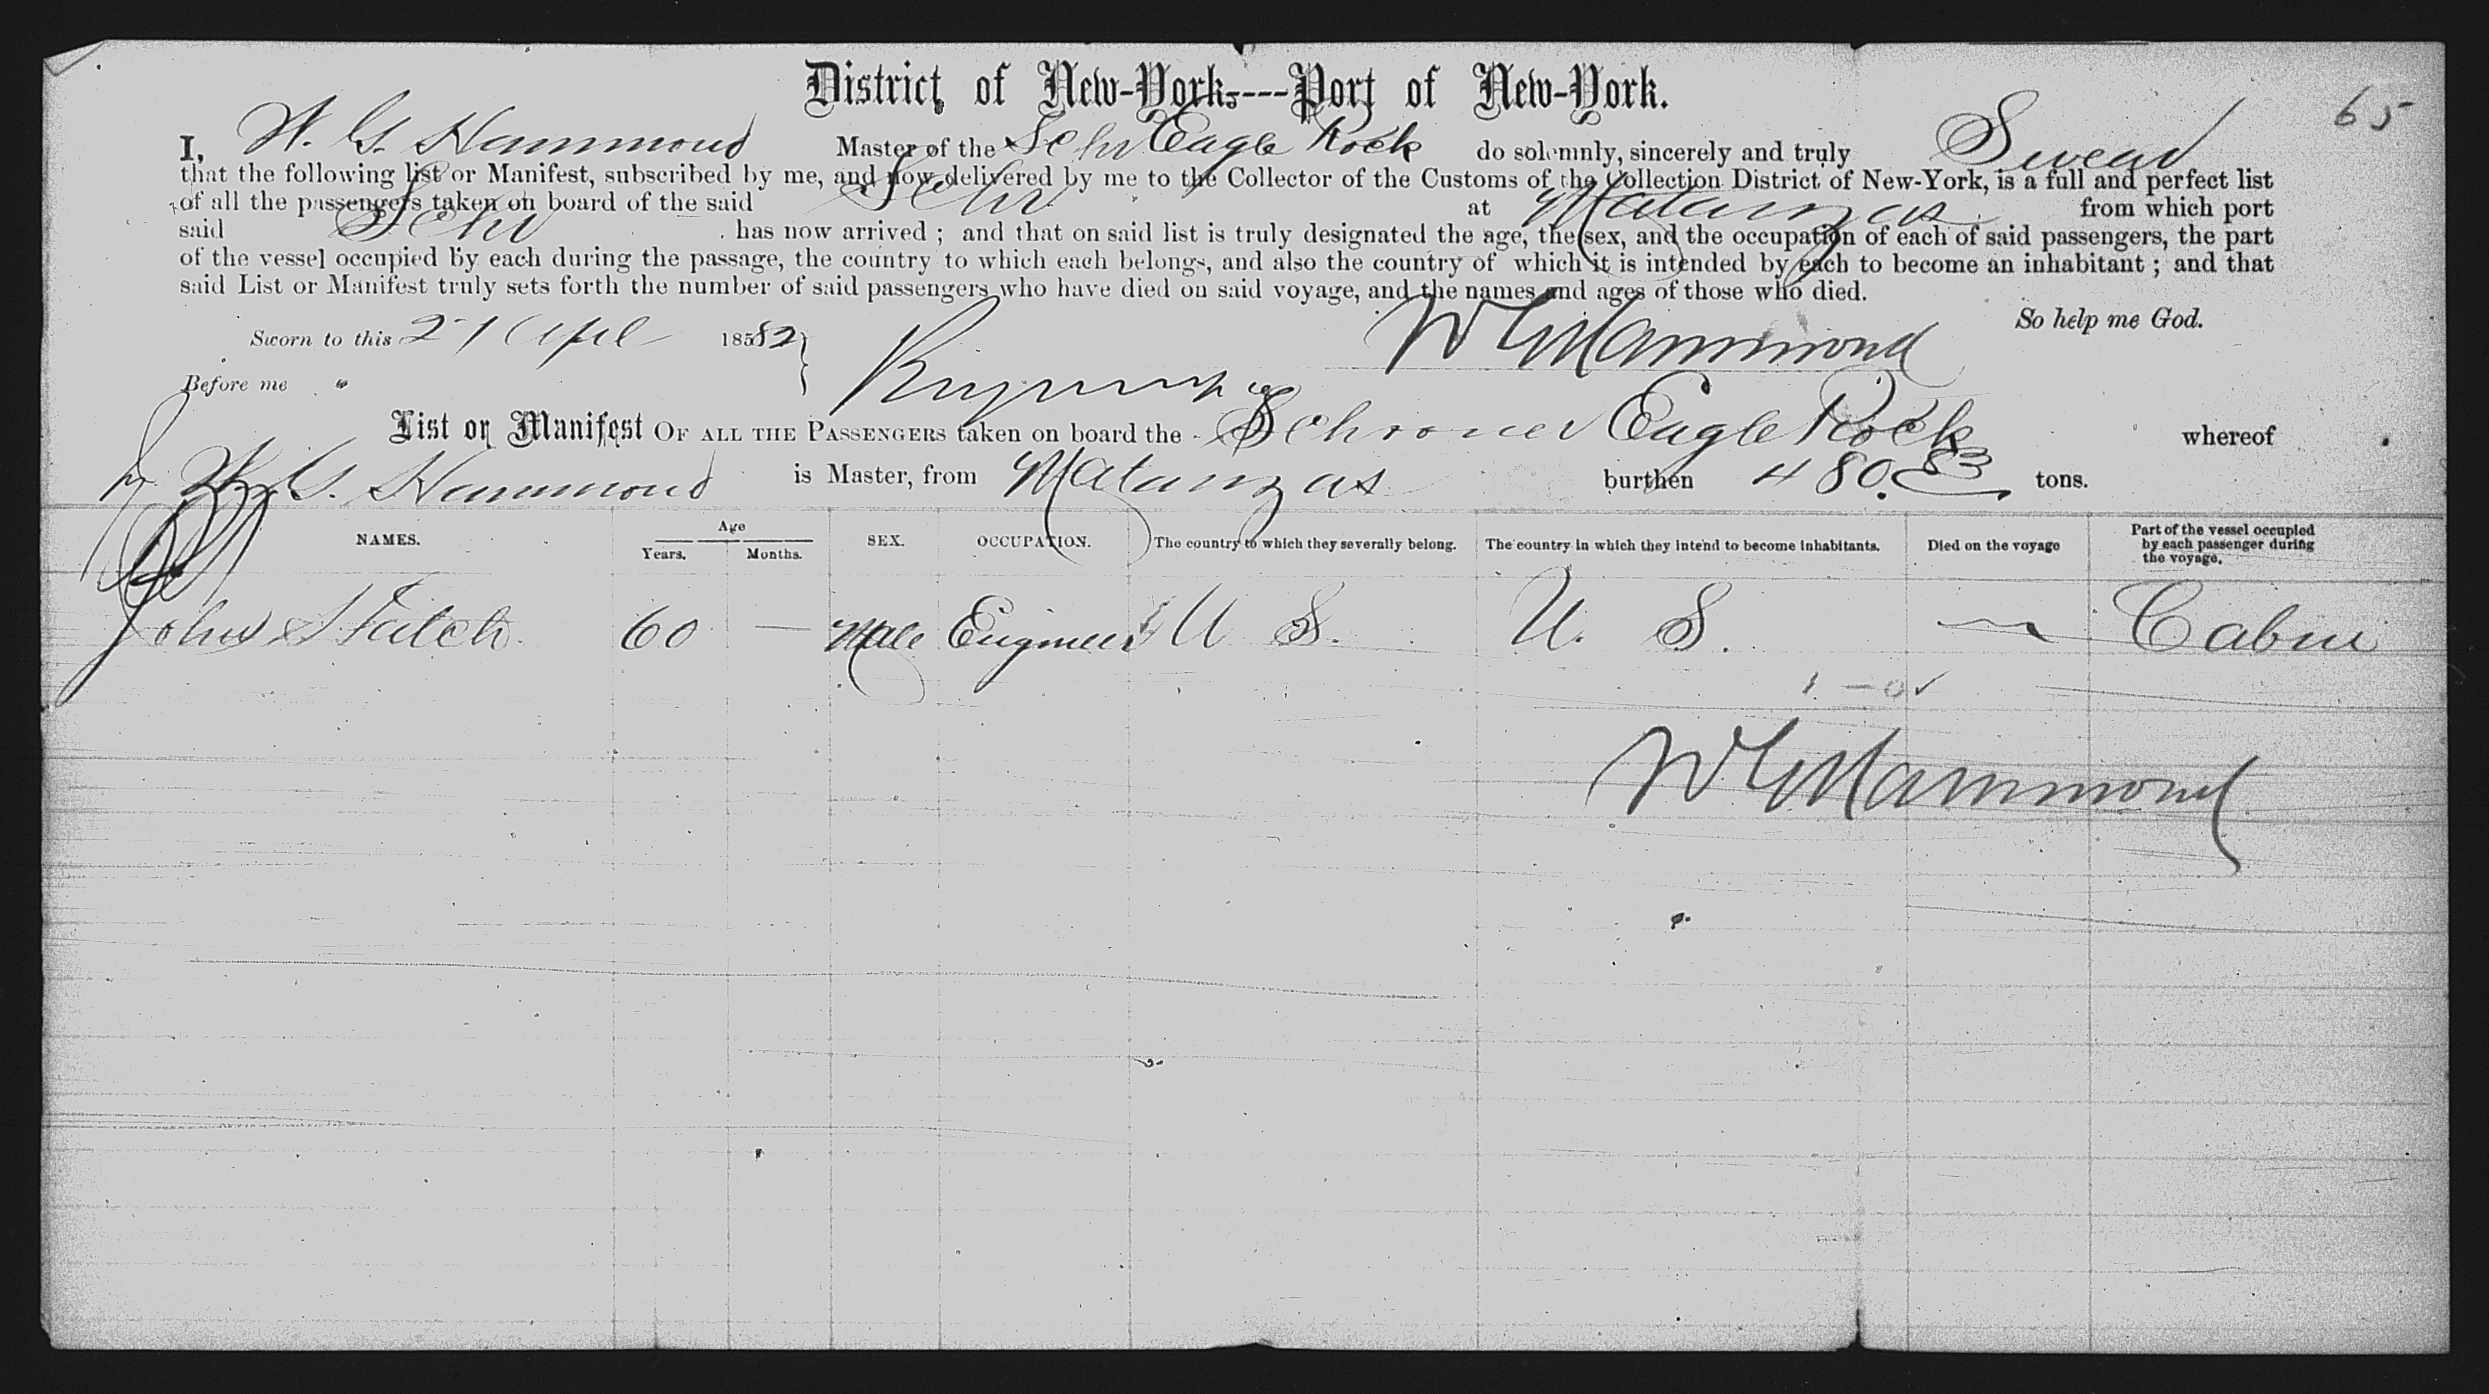 District of New-York----Port of New-York.
65
I, W. G. Hammond Master of the Schr Eagle Rock do solemnly, sincerely and truly Swear
that the following list or Manifest, subscribed by me, and now delivered by me to the Collector of the Customs of the Collection District of New-York, is a full and perfect list
of all the passengers taken on board of the said Schr at Matanzas from which port
said Schr has now arrived ; and that on said list is truly designated the age, the sex, and the occupation of each of said passengers, the part
of the vessel occupied by each during the passage, the country to which each belongs, and also the country of which it is intended by each to become an inhabitant ; and that
said List or Manifest truly sets forth the number of said passengers who have died on said voyage, and the names and ages of those who died.
So help me God.
Sworn to this 21 Apl 18582 W G Hammond
Before me
List or Manifest OF ALL THE PASSENGERS taken on board the Schooner Eagle Rock whereof
W. G. Hammond is Master, from Matanzas burthen 480.83 tons.
NAMES. Age Years. Months. SEX. OCCUPATION. The country to which they severally belong. The country in which they intend to become inhabitants. Died on the voyage Part of the vessel occupied by each passenger during the voyage.
John 60 — Male Engineer U S. U. S. — Cabin
W G Hammond